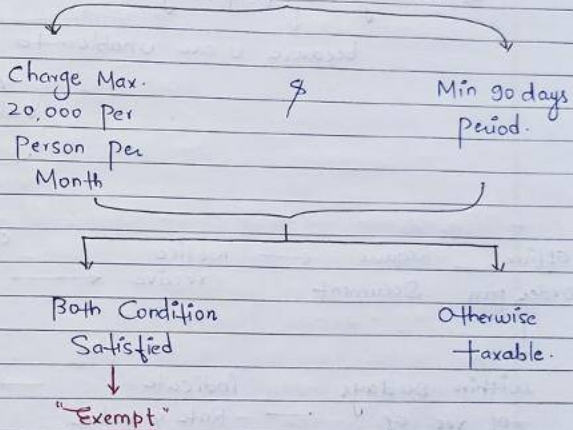 Charge Max.
20,000 Per
Person per
Month
&
Min 90 days
Period.
Both Condition
Satisfied
"Exempt"
Otherwise
taxable.